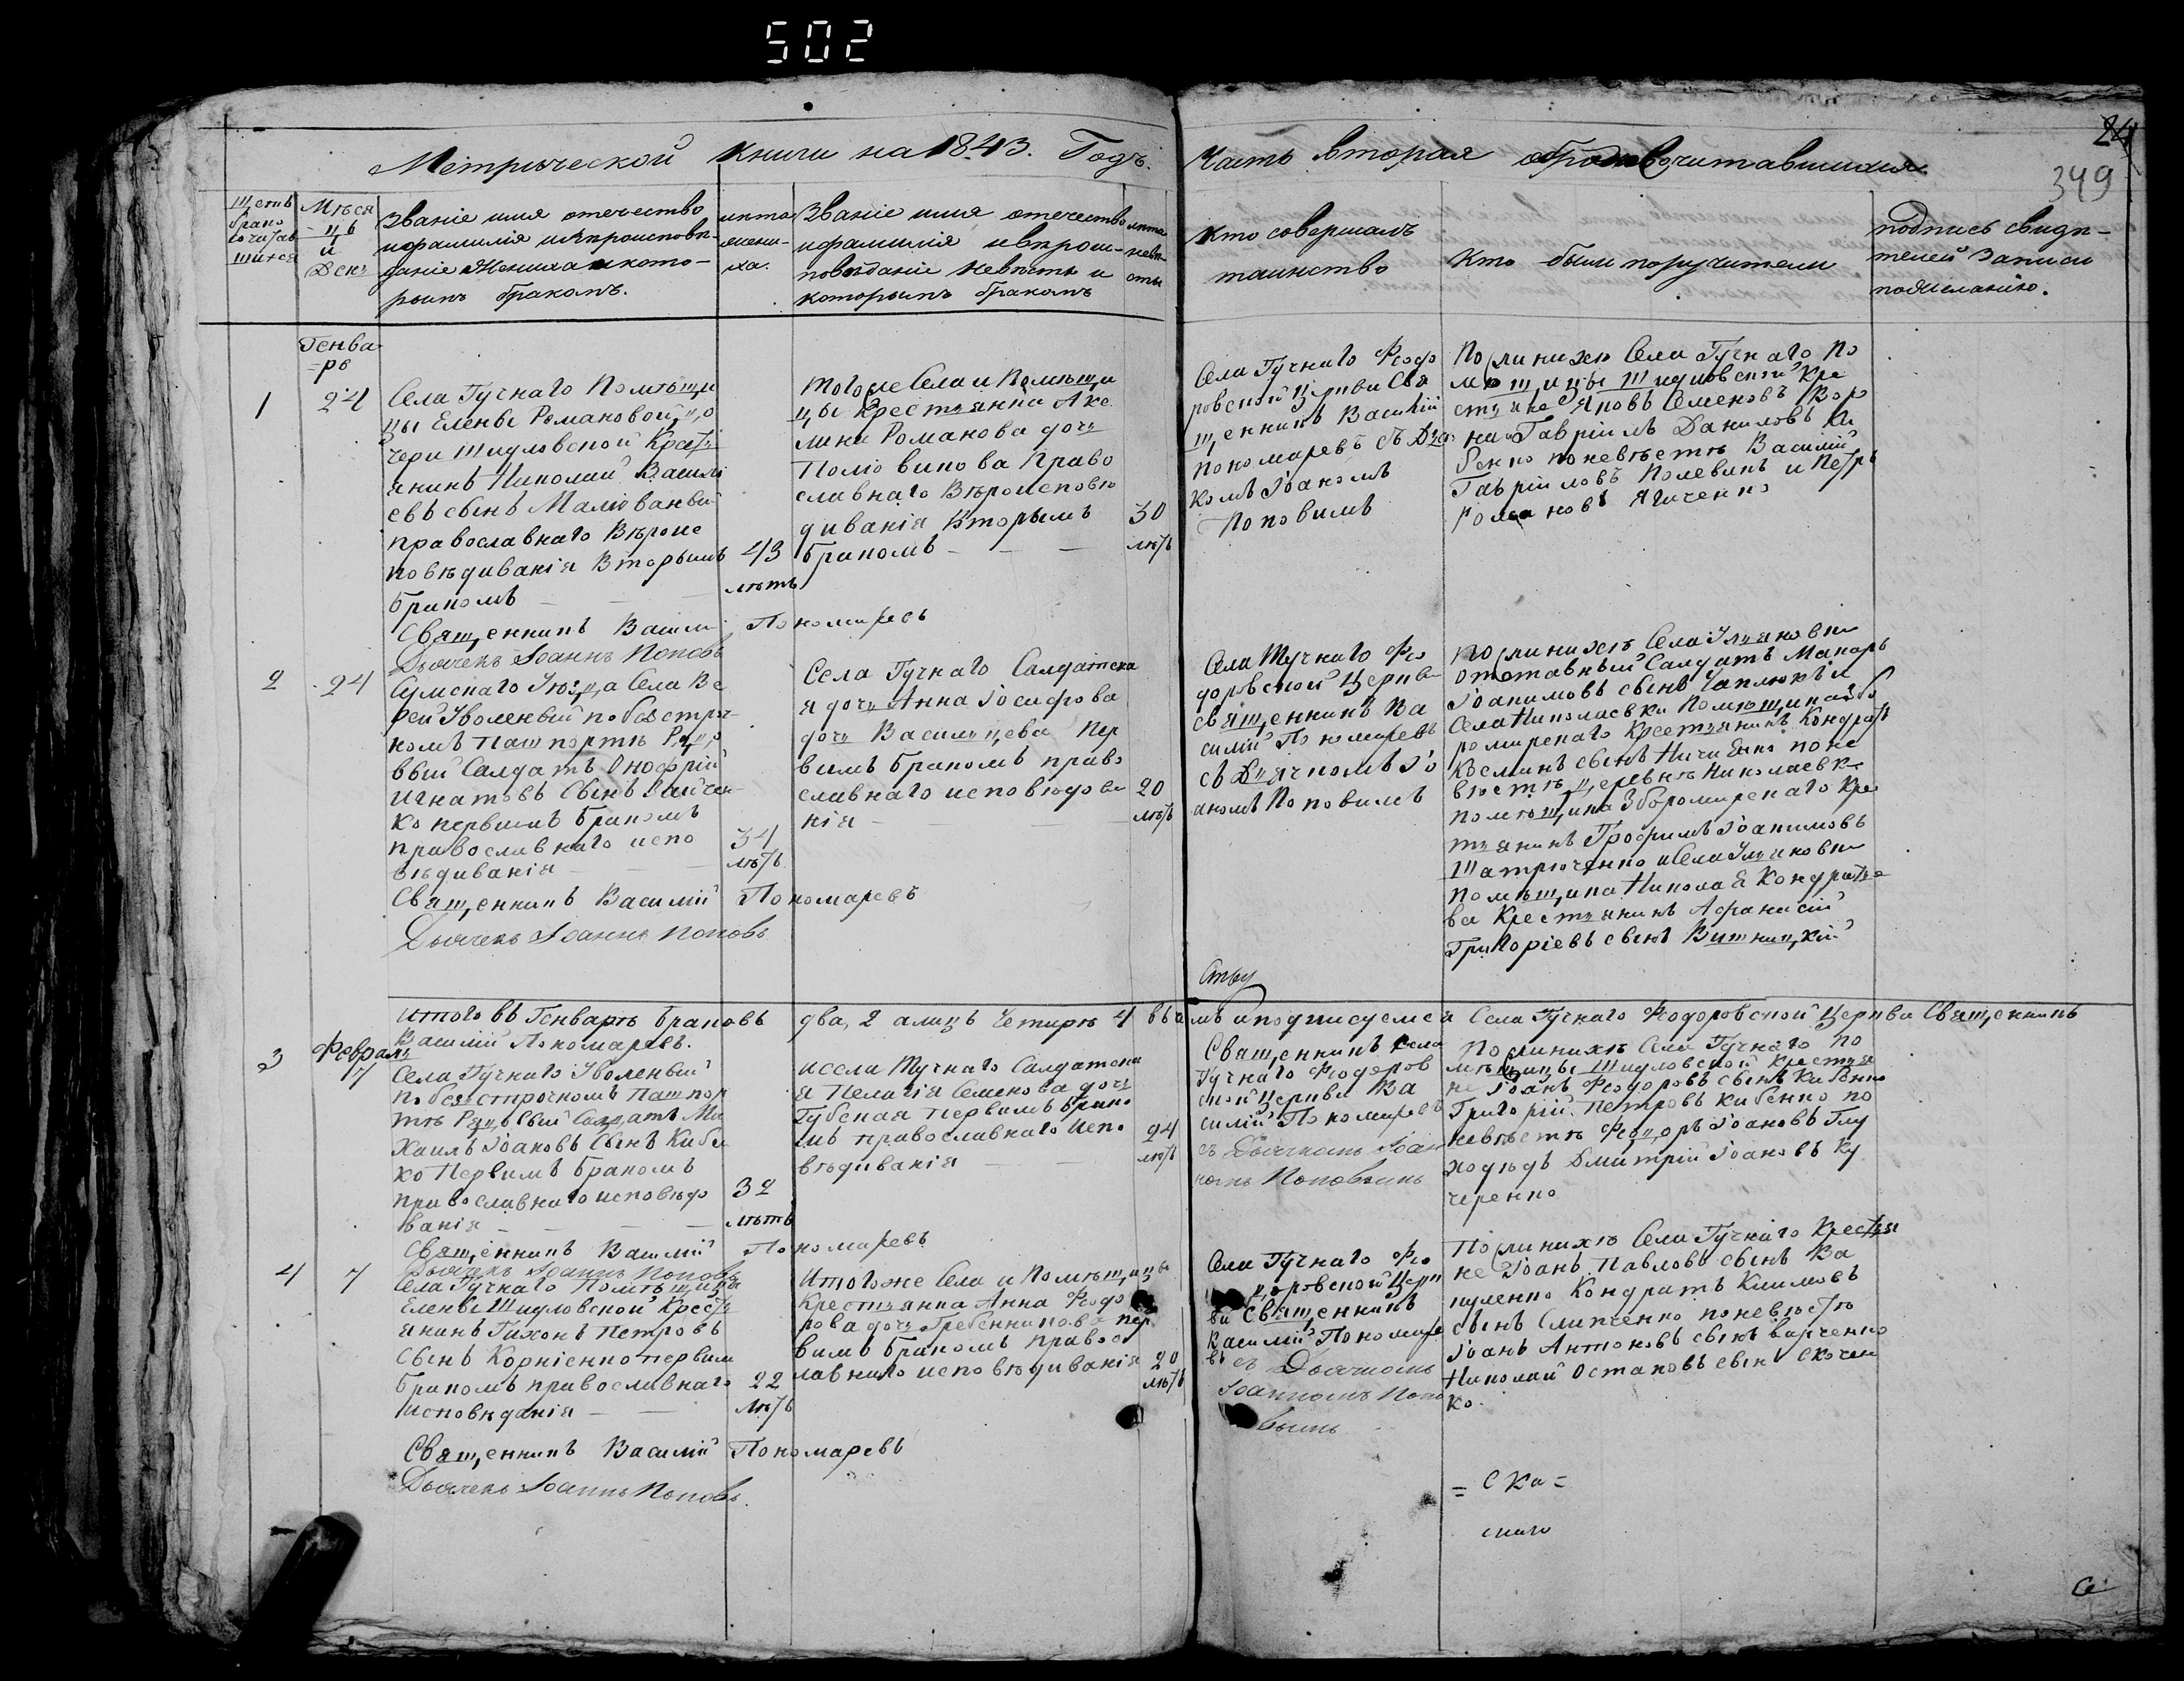 502
Метрической книги на 1843. Годъ.
Часть вторая
24
349
Щетъ
брако
сочитав
шихся
Мѣся
цъ
и
День
Званіе имя отечество
и фамилія и вѣроисповѣ-
даніе Жениха и кото-
рымъ бракомъ.
лѣта
жени-
ха.
Званіе имя отечество
и фамилія и вѣроис-
поведаніе невѣсты и
которымъ бракомъ
лѣта
невѣ-
сты
Кто совершалъ
таинство
Кто были поручители
подпись свидѣ-
телей записи
по желанію.
Генва-
=рь
1
24
Села Гучнаго Помѣщи
цы Елены Романовой
чери Шидловской Кресть
янинъ Николай Василі
евъ сынъ Малюваный
православнаго Вѣроис
повѣдиванія Вторымъ
бракомъ
43
лѣтъ
Того же Села и Помѣщи
цы Крестьянка Аке
лина Романова дочь
Православнаго Вѣроисповѣ
диванія Вторымъ
бракомъ
30
лѣтъ
Села Гучнаго Феодо
ровской Церкви Свя
щенникъ Василій
Пономаревъ съ Дья
комъ Іоаномъ
Поповимъ
По жинихю Села Гучнаго По
мѣщицы Шидловской Кре
стьяне Яковъ Семеновъ
Гавріилъ Даниловъ
по невѣстѣ Василій
Гавріиловъ и Петръ
Романовъ
Священникъ Васили Пономаревъ
Дьячекъ Іоаннъ Поповъ
2
24
Сумскаго Уюзда Села Ве
рей Уволеный по безстроч-
номъ Пашпортѣ Рядо
вый Салдатъ Онофрій
Игнатовъ Сынъ
ко первымъ бракомъ
православнаго испо
вѣдиванія
34
лѣтъ
Села Гучнаго Салдатска
я дочь Анна Іосифова
дочь Васильцева Пер
вимъ бракомъ право
славнаго исповюдова
нія
20
лѣтъ
Села Гучнаго Фео
доровской Церкви
священникъ Ва
силій Пономаревъ
съ Дьячкомъ Іо
аномъ Поповимъ
По жинихѣ Села Ульяновки
отставный Салдатъ Макаръ
Іоакимовъ сынъ и
Села Николаевки Помющика Збо
ромирскаго Крестьянинъ Кондратъ
Косминъ сынъ по не
вюстѣ деревнѣ Николаевке
помющика Зборомирскаго Кре
стьянинъ Трофимъ Іоакимовъ
и Села Ульяновки
помѣщика Николая Кондратье
ва Крестьянинъ Афанасій
Григоріевъ сынъ
Священникъ Василій Пономаревъ
Дьячекъ Іоаннъ Поповъ
итого въ Генварѣ браковъ два, 2 а лицъ четирѣ 4 въ чемъ и подписуемся Села Гучнаго Феодоровской Церкви Священникъ
Василій Пономаревъ.
3
Февраль
7
Села Гучнаго Уволеный
по безстрочномъ Пашпор
тѣ Рядовый Салдатъ Ми
хаилъ Іоановъ Сынъ Киби
ко Первимъ бракомъ
православнаго исповѣдо
ванія
32
лѣтъ
и села Гучнаго Салдатска
я Пелагія Семенова дочь
Губская первимъ брако
мъ православнаго испо
вѣдиванія
24
лютъ
Священникъ Села
Гучнаго Феодоров
ской Церкви Ва
силій Пономаревъ
съ Дьячкомъ Іоан
номъ Поповымъ
По жинихѣ Села Гучнаго По
мѣщицы Шидловской Крестья
не Іоанъ Феодоровъ сынъ Кибенко
Григорій Петровъ Кибенко по
невѣстѣ Феодоръ Іоановъ Глу
ходѣдъ Дмитрій Іоановъ Ку
черенко
Священникъ Василій Пономаревъ
Дьячекъ Іоаннъ Поповъ
4
7
Села Гучнаго Помѣщицы
Елены Шидловской Кресть
янинъ Тихонъ Петровъ
Сынъ Корніенко первим
бракомъ православнаго
исповѣданія
22
лѣтъ
И того же Села и Помѣщицы
Крестьянка Анна Феодо
рова дочь Гребенникова пер
вимъ бракомъ правос
лавнаго исповѣдиванія
20
лѣтъ
Села Гучнаго Фео
доровской Церк
ви Священникъ
Василій Пономаре
въ съ Дьячкомъ
Іоанномъ Попо
вымъ
По жинихѣ Села Гучнаго Крестья
не Іоанъ Павловъ сынъ
Кондратъ Климовъ
сынъ Слипченко по невюстѣ
Іоанъ Антоновъ сынъ
Николай Остаповъ сынъ Скочен
ко.
Священникъ Василій Пономаревъ
Дьячекъ Іоаннъ Поповъ.